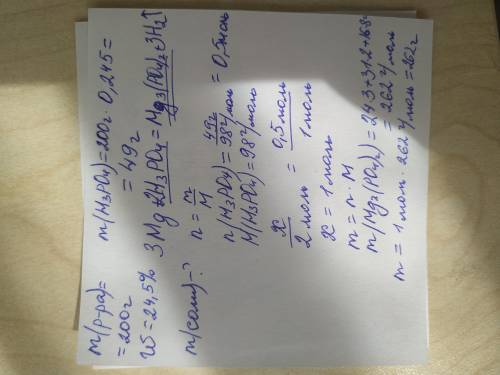 m(р-ра)=
=200г
W=24,5%
m(соли)-?
m(H3PO4)=200г · 0,245=
= 49г
3Mg+2H3PO4=Mg3(PO4)2+3H2↑
n = m/M
n(H3PO4)= 49г/98г/моль = 0,5моль
M(H3PO4)=98г/моль
x/2моль = 0,5моль/1моль
x = 1моль
m = n · M
m(Mg3(PO4)2)=24·3+31·2+16·8=
= 262г/моль
m = 1моль · 262г/моль=262г